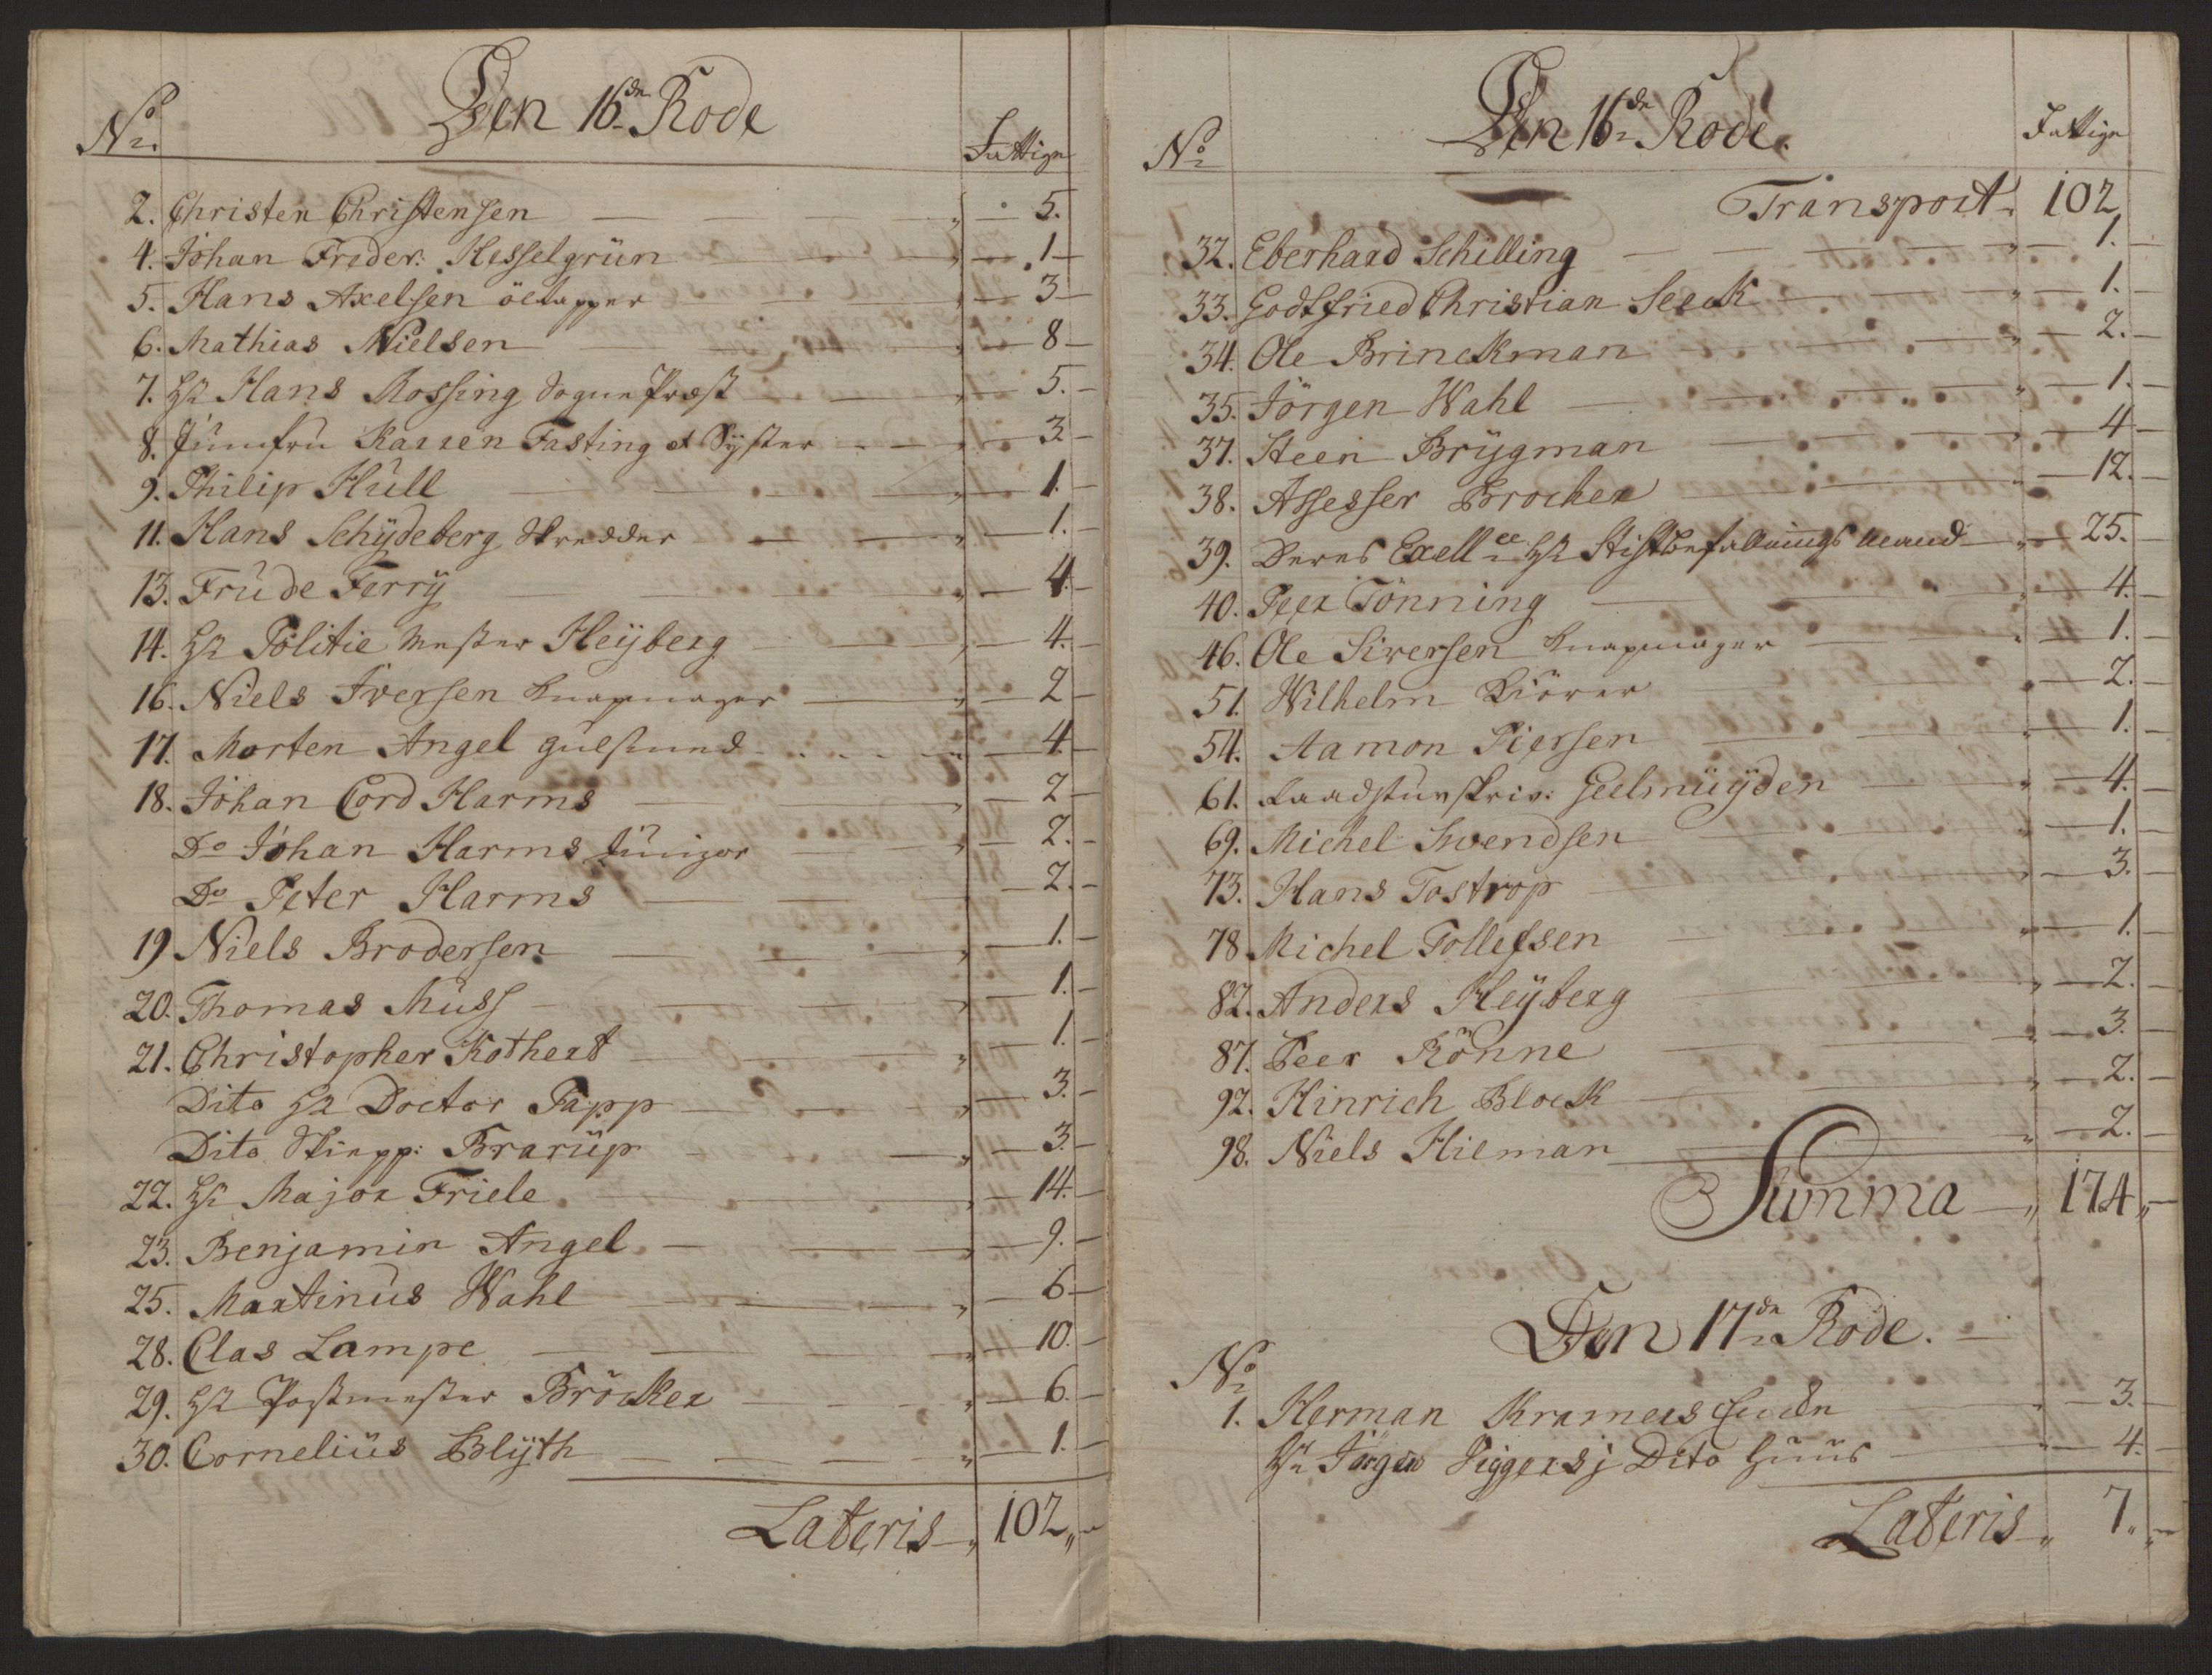 Den 16de Rode
No.
Fattige
2. Christen Christensen 5.
4. Johan Freder: Hesselgrün 1
5. Hans Axelsen öltapper 3
6. Mathias Nielsen 8
7. Hr Hans Mossing Sogne Præst 5.
8. Jumfru Karren Fasting et Syster 3
9. Philip Hüll 1.
11. Hans Schÿdeberg Skredder 1.
13. Frue de Ferrÿ 4.
14. Hr Politie Mester Heÿberg 4.
16. Niels Iversen Knapmager 2
17. Morten Angel gulsmed 4
18. Johan Cord Harms 2
Do Johan Harms Junior 2.
Do Peter Harms 2.
19 Niels Brodersen 1.
20. Thomas Muss 1.
21. Christopher Kothert 1.
Dito Hr Doctor Papp 3.
Dito Skipp: Brarüp 3.
22. Hr Major Friele 14.
23. Benjamin Angel 9.
25. Martinus Wahl 6
28. Clas Lampe 10.
29. Hr Postmester Bröcker 6.
30. Cornelius Blÿth 1.
Lateris 102
Den 16de Rode.
No
Fattige
Transport 102
32. Eberhard Schilling 1.
33. Godtfried Christian Seek 1.
34. Ole Brinckman 2.
35. Jörgen Wahl 1.
37. Steen Brÿgman 4
38. Assesser Brocher 12.
39. Deres Exellce Hr Stiftbefallnings Mand 25.
40. Peer Tönning 4.
46. Ole Siversen Knapmager 1.
51. Wilhelm Kiörer 2.
54. Aamon Piersen 1.
61. Raadstueskriv: Geelmüÿden 4.
69. Michel Svendsen 1.
73. Hans Tostrop 3.
78 Michel Tollefsen 1.
82. Anders Heÿberg 2.
87. Peer Rönne 3.
92. Hinrich Block 2.
98. Niels Hieman 2.
Summa 174
Den 17de Rode.
No
1. Herman Kramers Encke 3.
Hr Jörgen Viggers j Dito Huus 4.
Lateris 7.